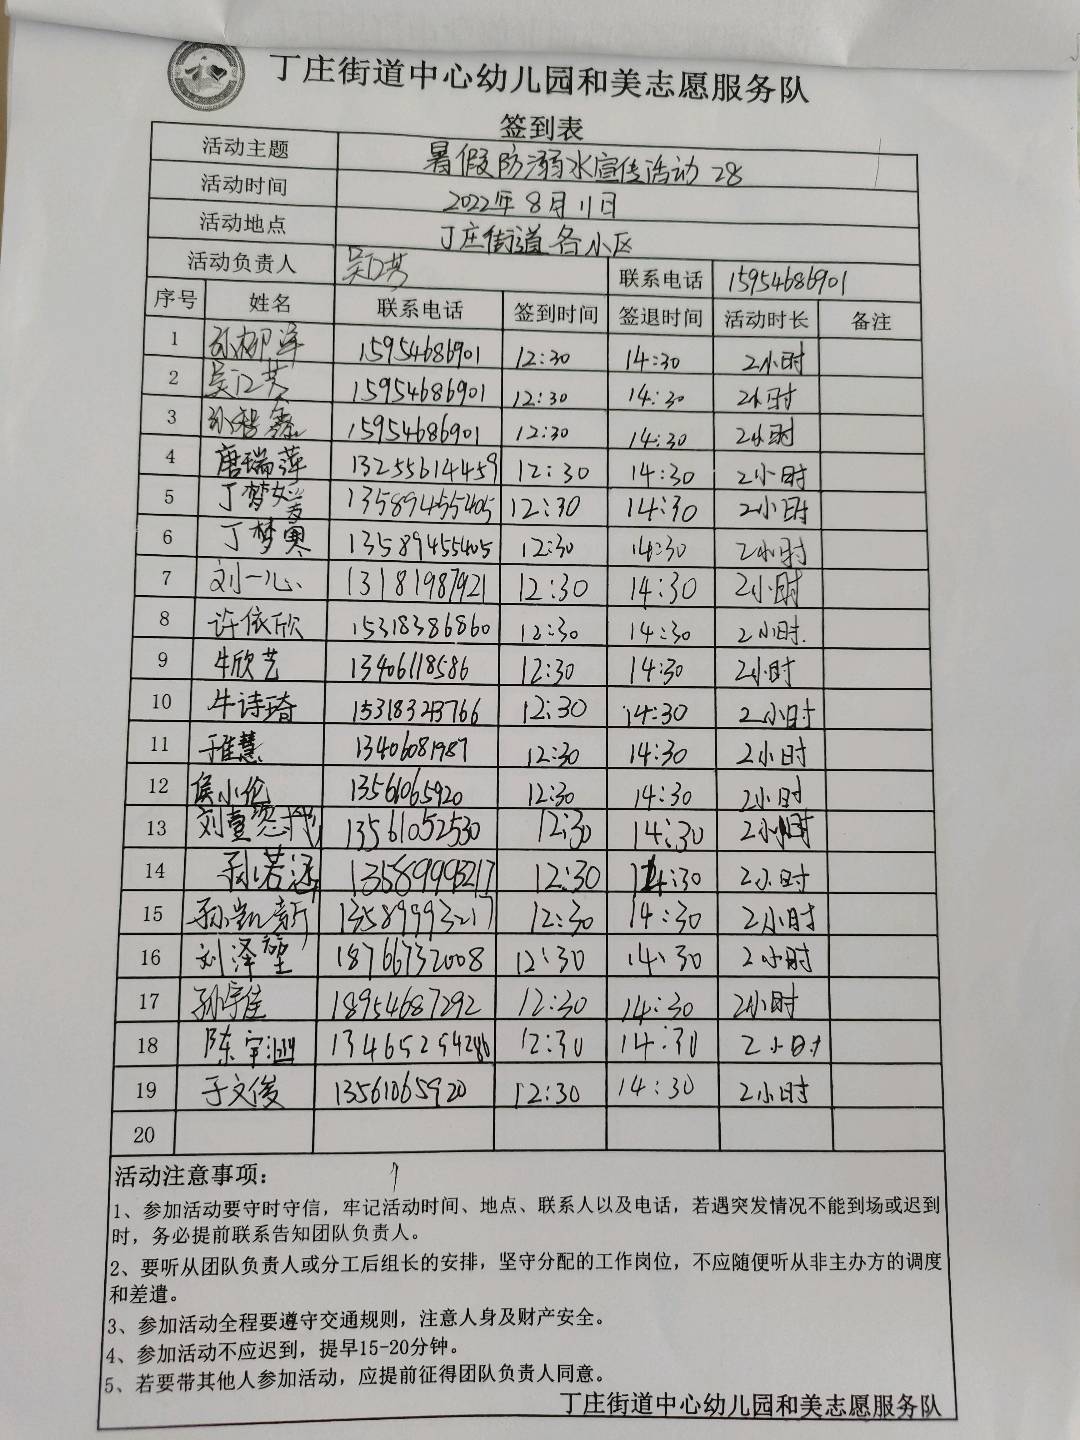 丁庄街道中心幼儿园和美志愿服务队
签到表
活动主题 暑假防溺水宣传活动 28
活动时间 2022年8月11日
活动地点 丁庄街道各小区
活动负责人 吴江芳 联系电话 15954686901
序号 姓名 联系电话 签到时间 签退时间 活动时长 备注
1 孙柳洋 15954686901 12:30 14:30 2小时
2 吴江芳 15954686901 12:30 14:30 2小时
3 孙智鑫 15954686901 12:30 14:30 2小时
4 唐瑞萍 13255614459 12:30 14:30 2小时
5 丁梦 13589455405 12:30 14:30 2小时
6 丁梦寒 13589455405 12:30 14:30 2小时
7 刘一心 13181987921 12:30 14:30 2小时
8 许依欣 15318386860 12:30 14:30 2小时
9 牛欣艺 13406118586 12:30 14:30 2小时
10 牛诗琦 15318323766 12:30 14:30 2小时
11 于雅慧 13406081987 12:30 14:30 2小时
12 侯小伦 13561065920 12:30 14:30 2小时
13 刘 13561052530 12:30 14:30 2小时
14 孙若涵 13589993217 12:30 14:30 2小时
15 孙凯新 13589993217 12:30 14:30 2小时
16 刘泽 18766732008 12:30 14:30 2小时
17 孙宇佳 18954687292 12:30 14:30 2小时
18 陈宇 13465294286 12:30 14:30 2小时
19 于文俊 13561065920 12:30 14:30 2小时
20
活动注意事项：
1、参加活动要守时守信，牢记活动时间、地点、联系人以及电话，若遇突发情况不能到场或迟到
时，务必提前联系告知团队负责人。
2、要听从团队负责人或分工后组长的安排，坚守分配的工作岗位，不应随便听从非主办方的调度
和差遣。
3、参加活动全程要遵守交通规则，注意人身及财产安全。
4、参加活动不应迟到，提早15-20分钟。
5、若要带其他人参加活动，应提前征得团队负责人同意。
丁庄街道中心幼儿园和美志愿服务队